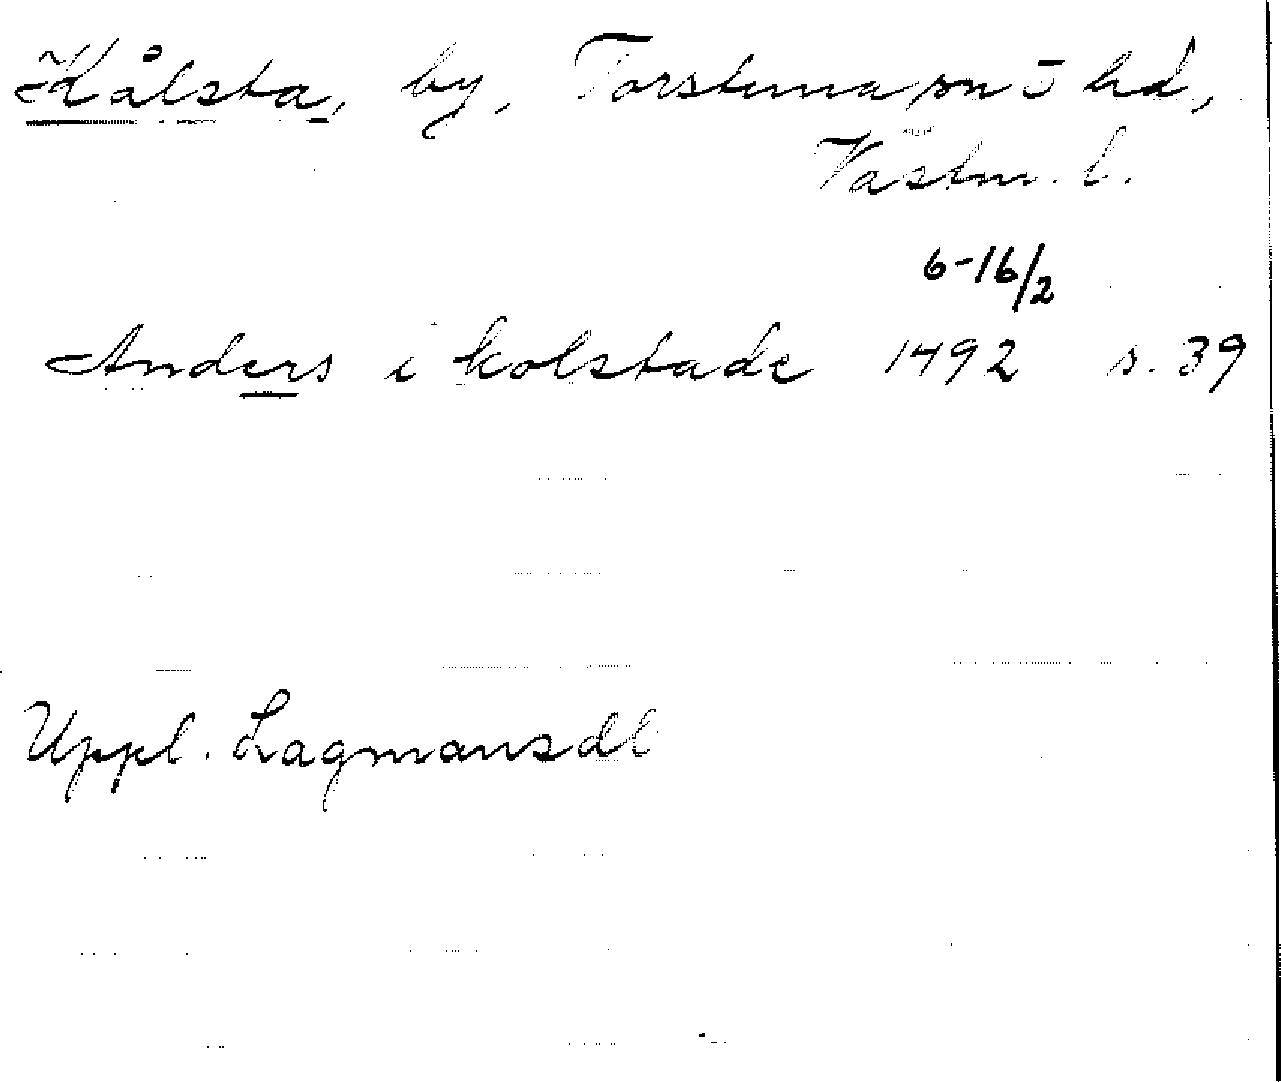 Kålsta, by, Torstuna sn o hd,
Västm. l.
6-16/2
Anders i kolstade 1492 s. 39
Uppl. Lagmansdb